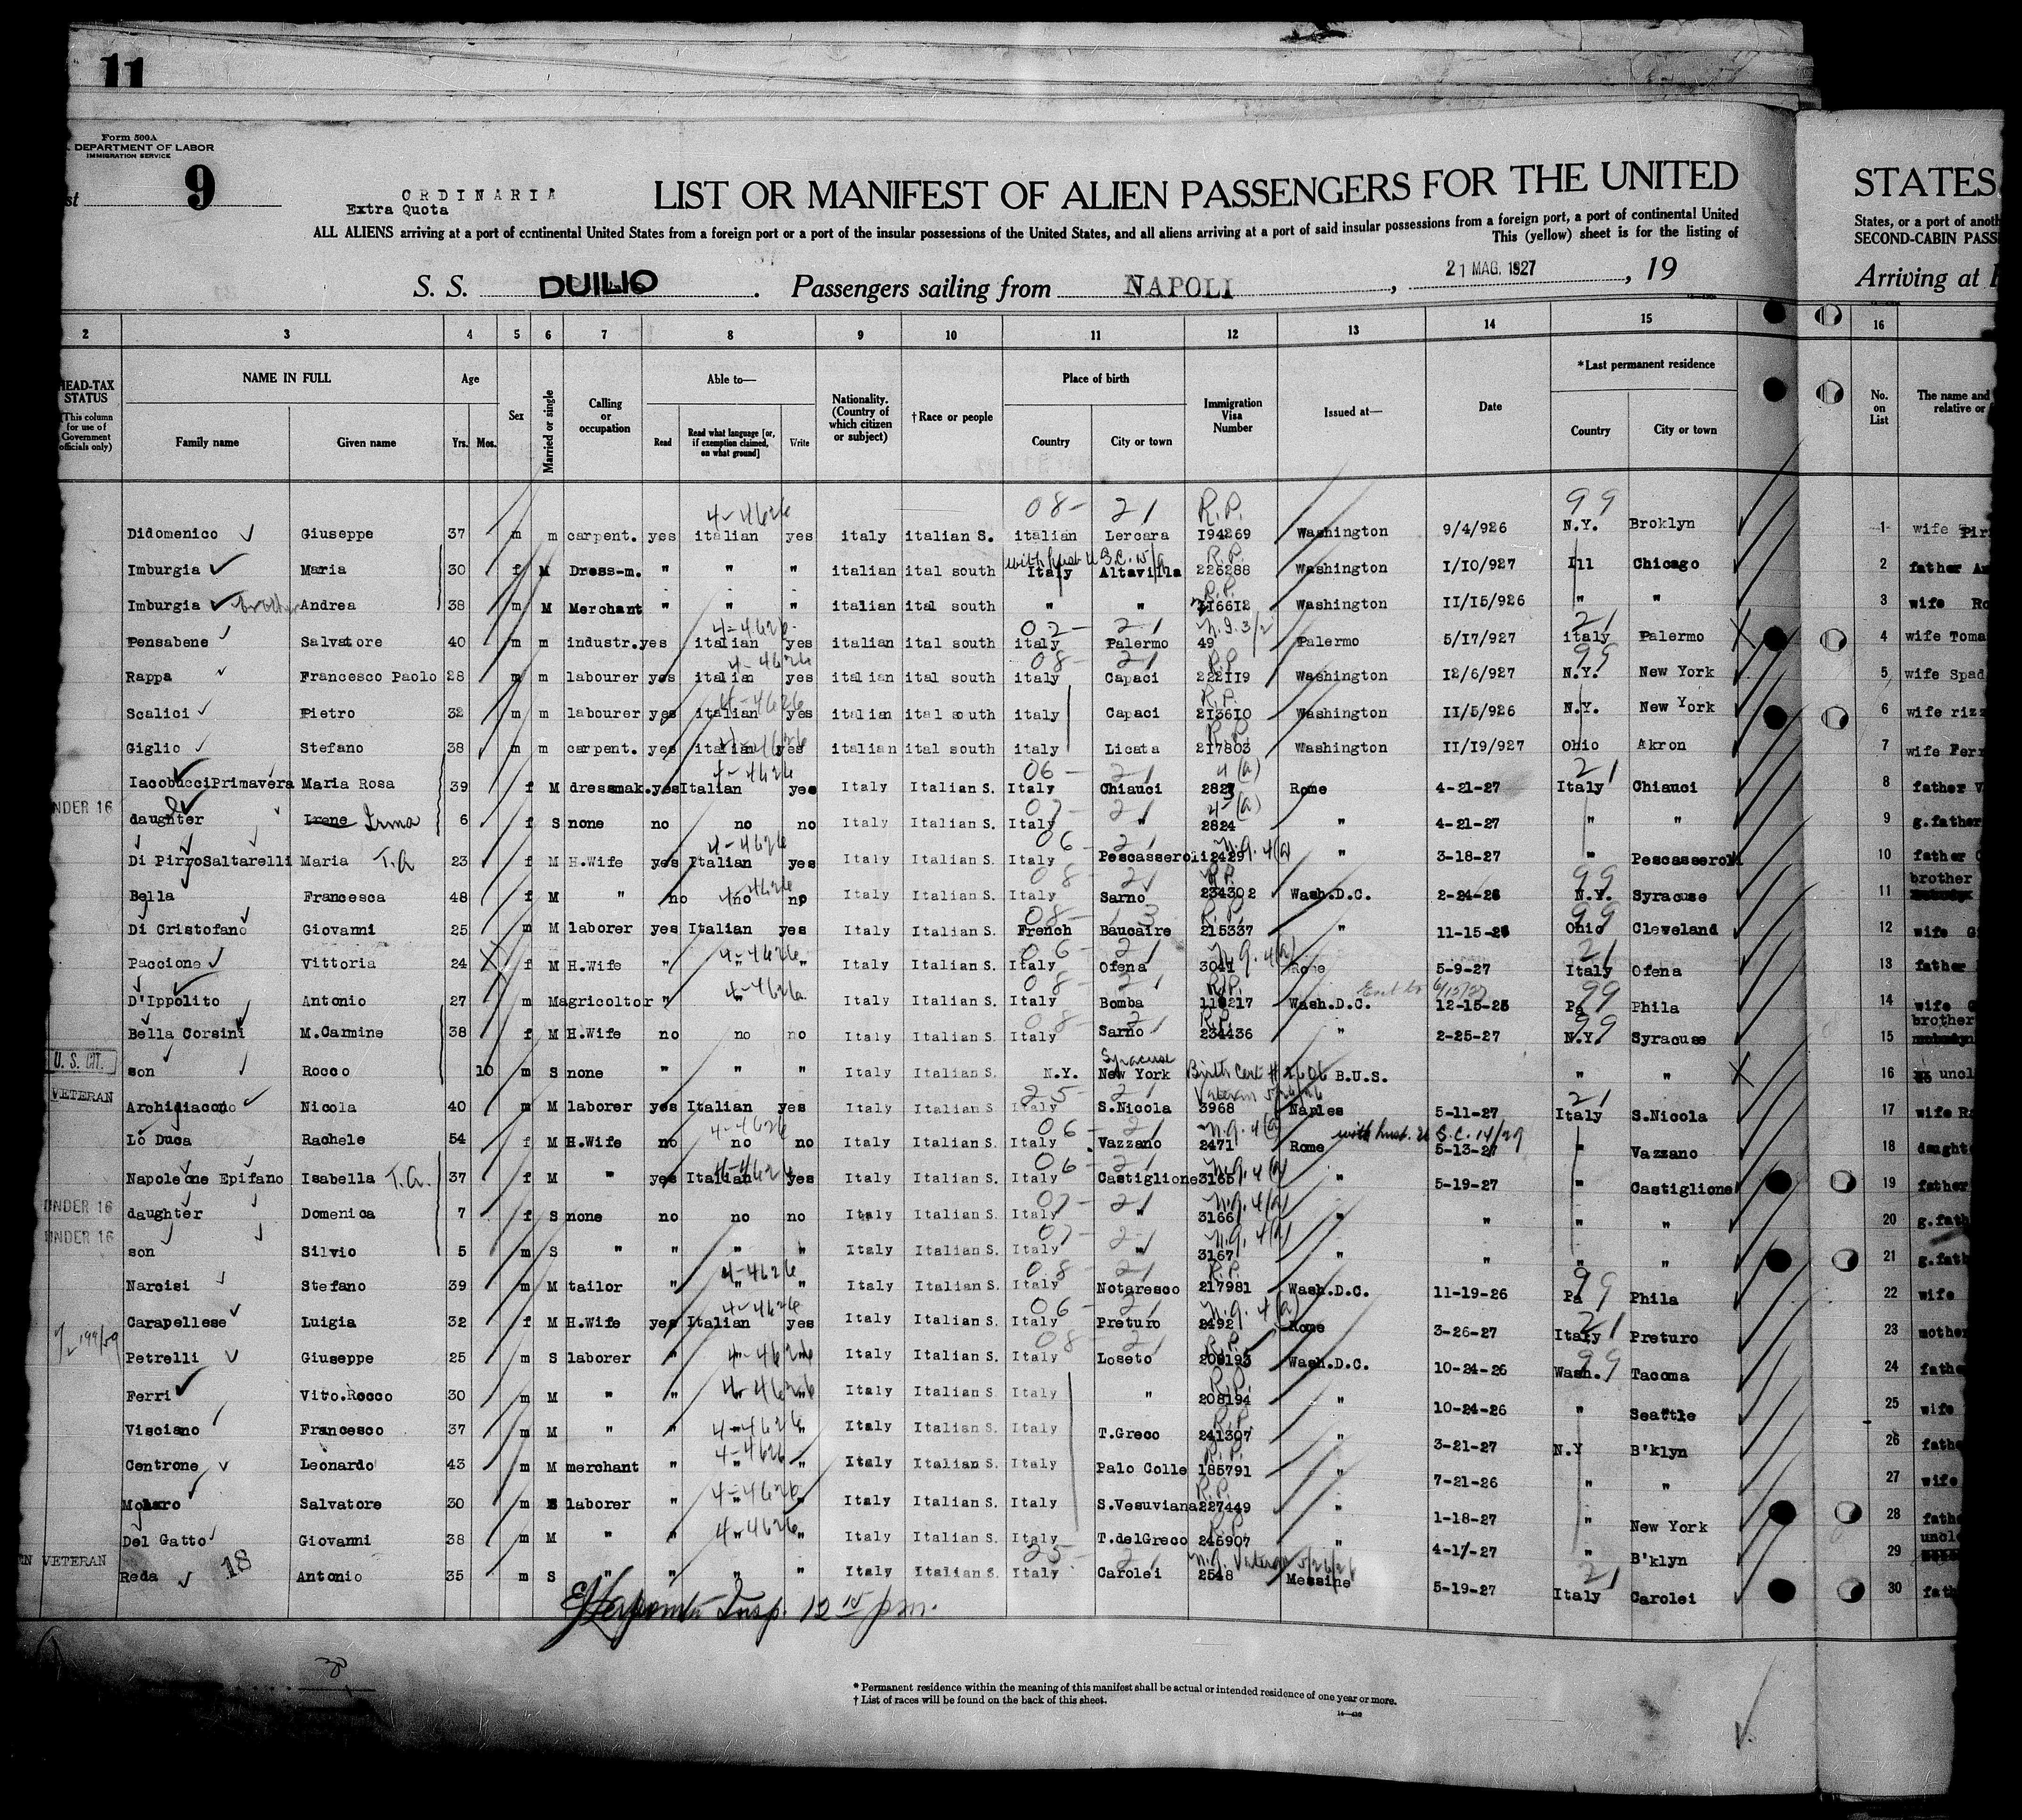 11
Form 500A
DEPARTMENT OF LABOR
IMMIGRATION SERVICE
9
ORDINARIA
Extra Quota
LIST OR MANIFEST OF ALIEN PASSENGERS FOR THE UNITED
STATES
ALL ALIENS arriving at a port of continental United States from a foreign port or a port of the insular possessions of the United States, and all aliens arriving at a port of said insular possessions from a foreign port, a port of continental United
States, or a port of
This (yellow) sheet is for the listing of
SECOND-CABIN
S. S. DUILIO. Passengers sailing from NAPOLI, 21 MAG. 1927, 19
Arriving at
2 3 4 5 6 7 8 9 10 11 12 13 14 15 16
HEAD-TAX STATUS (This column for use of Government officials only)
NAME IN FULL Family name Given name
Age Yrs. Mos.
Sex
Married or single
Calling or occupation
Able to— Read Read what language [or, if exemption claimed, on what ground] Write
Nationality. (Country of which citizen or subject)
† Race or people
Place of birth Country City or town
Immigration Visa Number
Issued at—
Date
* Last permanent residence Country City or town
No. on List
The name and relative or
08- 21 R.P. 99
Didomenico Giuseppe 37 m m carpent. yes 4-4626 italian yes italy italian S. italian Lercara 194269 Washington 9/4/926 N.Y. Broklyn 1 wife
Imburgia Maria 30 f M Dress-m. " " " italian ital south Italy Altavilla R.P. 226288 Washington I/10/927 Ill Chicago 2 father
Imburgia brother Andrea 38 m M Merchant " " " italian ital south " " R.P. 316612 Washington II/15/926 " " 3 wife
Pensabene Salvatore 40 m m industr. yes 4-4626 italian yes italian ital south 02- 21 italy Palermo 49 Palermo 5/17/927 21 italy Palermo 4 wife Toma
Rappa Francesco Paolo 28 m m labourer yes 4-4626 italian yes italian ital south 08- 21 italy Capaci R.P. 222119 Washington I2/6/927 99 N.Y. New York 5 wife Spad
Scalici Pietro 32 m m labourer yes 4-4626 italian yes italian ital south italy Capaci R.P. 213610 Washington II/5/926 N.Y. New York 6 wife rizz
Giglio Stefano 38 m m carpent. yes 4-4626 italian yes italian ital south italy Licata R.P. 217803 Washington II/19/927 Ohio Akron 7 wife Ferr
Iacobucci Primavera Maria Rosa 39 f M dressmak. yes 4-4626 Italian yes Italy Italian S. 06- 21 Italy Chiauci 4(a) 2823 Rome 4-21-27 21 Italy Chiauci 8 father
UNDER 16 daughter Irene Irma 6 f S none no no no Italy Italian S. 07- 21 Italy " 4(a) 2824 " 4-21-27 " " 9 g.father
Di Pirro Saltarelli Maria T.A 23 f M H.Wife yes 4-4626 Italian yes Italy Italian S. 06- 21 Italy Pescasseroli N.Q. 4(a) 2429 " 3-18-27 " Pescasseroli 10 father
Bella Francesca 48 f M " no 4-4626 no no Italy Italian S. 08- 21 Italy Sarno R.P. 234302 Wash.D.C. 2-24-26 99 N.Y. Syracuse 11 brother
Di Cristofano Giovanni 25 m M laborer yes Italian yes Italy Italian S. 08- 13 French Baucaire R.P. 215337 " 11-15-26 99 Ohio Cleveland 12 wife
Paccione Vittoria 24 f M H.Wife " 4-4626 " " Italy Italian S. 06- 21 Italy Ofena N.Q. 4(a) 3041 Rome 5-9-27 21 Italy Ofena 13 father
D'Ippolito Antonio 27 m M agricoltor " 4-4626 " Italy Italian S. 08- 21 Italy Bomba R.P. 118217 Wash.D.C. 12-15-25 99 Pa Phila 14 wife
Bella Corsini M.Carmine 38 f M H.Wife no no no Italy Italian S. 08- 21 Italy Sarno R.P. 234436 " 2-25-27 99 N.Y. Syracuse 15 brother
U. S. CIT. son Rocco 10 m S none " " " Italy Italian S. N.Y. Syracuse New York Birth Cert # 2606 B.U.S. " " 16 uncl
VETERAN Archigiacono Nicola 40 m M laborer yes Italian yes Italy Italian S. 25- 21 Italy S.Nicola Veteran 5/26/26 3968 Naples 5-11-27 21 Italy S.Nicola 17 wife
Lo Duca Rachele 54 f M H.Wife no 4-4626 no no Italy Italian S. 06- 21 Italy Vazzano N.Q. 4(a) 2471 Rome 5-13-27 " Vazzano 18 daught
Napoleone Epifano Isabella T.A. 37 f M " yes 4-4626 Italian yes Italy Italian S. 06- 21 Italy Castiglione N.Q. 4(a) 3165 " 5-19-27 " Castiglione 19 father
UNDER 16 daughter Domenica 7 f S none no no no Italy Italian S. 07- 21 Italy " N.Q. 4(a) 3166 " " " " 20 g.fath
UNDER 16 son Silvio 5 m S " " " " Italy Italian S. 07- 21 Italy " N.Q. 4(a) 3167 " " " " 21 g.fath
Narcisi Stefano 39 m M tailor " 4-4626 " " Italy Italian S. 08- 21 Italy Notaresco R.P. 217981 Wash.D.C. 11-19-26 99 Pa Phila 22 wife
Carapellese Luigia 32 f M H.Wife yes 4-4626 Italian yes Italy Italian S. 06- 21 Italy Preturo N.Q. 4(a) 2492 Rome 3-26-27 21 Italy Preturo 23 mother
Petrelli Giuseppe 25 m S laborer " 4-4626 " Italy Italian S. 08- 21 Italy Loseto R.P. 208193 Wash.D.C. 10-24-26 99 Wash. Tacoma 24 fathe
Ferri Vito.Rocco 30 m M " " 4-4626 " Italy Italian S. Italy " R.P. 208194 " 10-24-26 " Seattle 25 wife
Visciano Francesco 37 m M " " 4-4626 " Italy Italian S. Italy T.Greco R.P. 241307 " 3-21-27 N.Y B'klyn 26 fathe
Centrone Leonardo 43 m M merchant " 4-4626 " Italy Italian S. Italy Palo Colle R.P. 185791 " 7-21-26 " " 27 wife
Salvatore 30 m laborer " 4-4626 " Italy Italian S. Italy S.Vesuviana R.P. 227449 " 1-18-27 " New York 28 fathe
Del Gatto Giovanni 38 m M " " 4-4626 " Italy Italian S. Italy T.delGreco R.P. 246907 " 4-1-27 " B'klyn 29 uncle
VETERAN Reda 18 Antonio 35 m S " " " " Italy Italian S. 25- 21 Italy Carolei Veteran 5/26/26 2548 Messine 5-19-27 21 Italy Carolei 30 fath
Insp. 12 pm.
* Permanent residence within the meaning of this manifest shall be actual or intended residence of one year or more.
† List of races will be found on the back of this sheet.